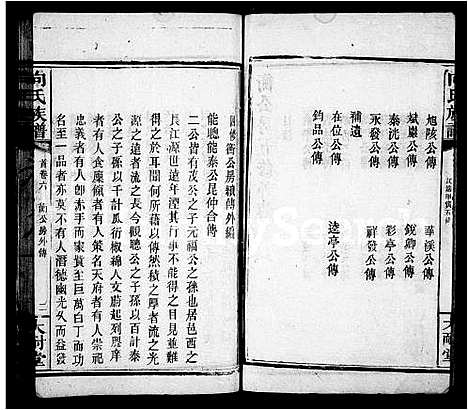 向氏族譜
旭陔公傳
華溪公傳
斌巖公傳
銳卿公傳
泰洗公傳
彩亭公傳
永發公傳
祥發公傳
補遺
在位公傳
逵亭公傳
鈞品公傳
大耐堂
衡公房外傳
四修衡公房賴傳外編
能聰能泰公昆仲合傳
二公皆有茂公之子元福公之孫也居邑西之
長江源世遠年湮其行事不能得之目見並難
得之於耳聞何所藉以傳然積之厚者流之光
源之遠者流之長今觀聰公之子孫以百計泰
公之子孫以千計瓜衍椒綿人文蔚起列膠庠
者有人食廩餼者有人策名天府者有人崇祀
忠義者有人赤手而家貲至巨萬白丁而功
名至一品者亦莫不有人潛德幽光久而益發
向氏族譜
首卷六
衡公房外傳
二
大耐堂